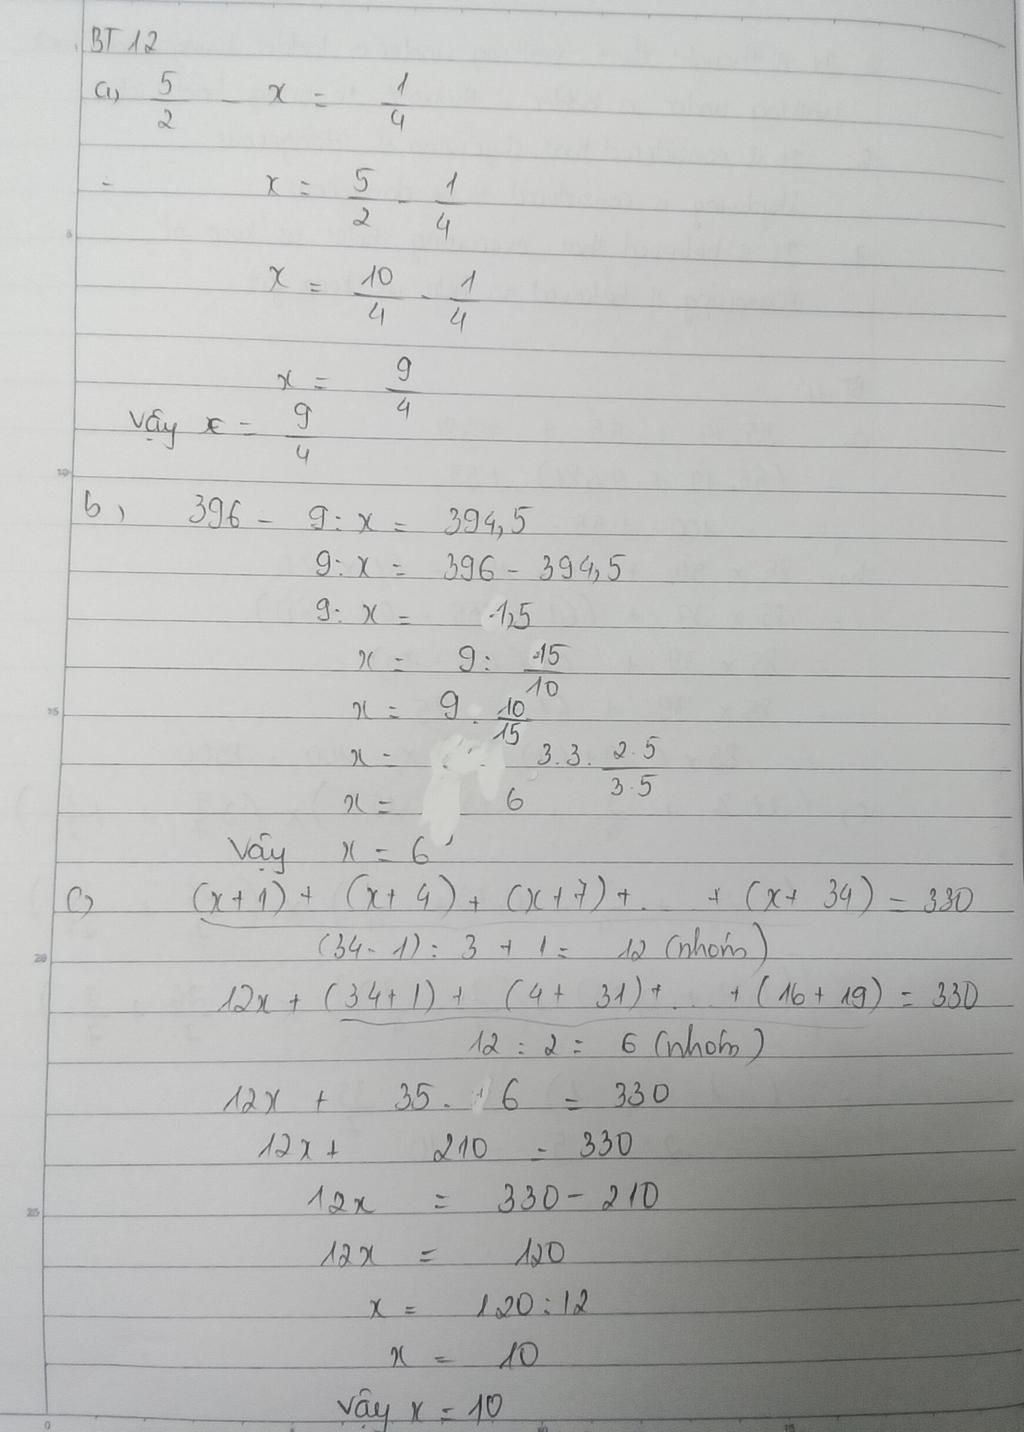 BT 12
a, 5/2 - x = 1/4
x = 5/2 - 1/4
x = 10/4 - 1/4
x = 9/4
Vậy x = 9/4
b, 396 - 9 : x = 394,5
9 : x = 396 - 394,5
9 : x = 1,5
x = 9 : 15/10
x = 9 . 10/15
x = 3.3. 2.5/3.5
x = 6
Vậy x = 6
c, (x+1) + (x+4) + (x+7) + ... + (x+34) = 330
(34-1) : 3 + 1 = 12 (nhóm)
12x + (34+1) + (4+31) + ... + (16+19) = 330
12 : 2 = 6 (nhóm)
12x + 35 . 6 = 330
12x + 210 = 330
12x = 330 - 210
12x = 120
x = 120 : 12
x = 10
Vậy x = 10